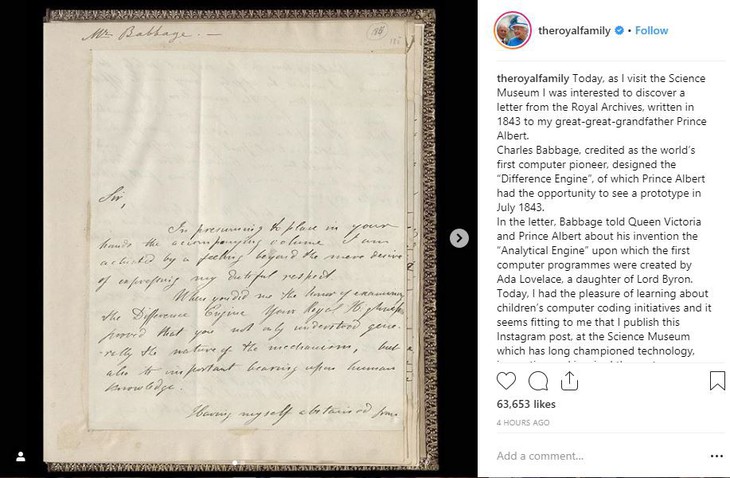 Mr Babbage. —
186
Sir,
In presuming to place in your
hands the accompanying volume I am
actuated by a feeling beyond the mere desire
of expressing my dutiful respect
When you did me the honor of examining
the Difference Engine Your Royal Highness
proved that you not only understood gene-
rally the nature of the mechanism, but
also its important bearing upon human
knowledge.
Having myself abstained from
theroyalfamily • Follow
theroyalfamily Today, as I visit the Science
Museum I was interested to discover a
letter from the Royal Archives, written in
1843 to my great-great-grandfather Prince
Albert.
Charles Babbage, credited as the world's
first computer pioneer, designed the
"Difference Engine", of which Prince Albert
had the opportunity to see a prototype in
July 1843.
In the letter, Babbage told Queen Victoria
and Prince Albert about his invention the
"Analytical Engine" upon which the first
computer programmes were created by
Ada Lovelace, a daughter of Lord Byron.
Today, I had the pleasure of learning about
children's computer coding initiatives and it
seems fitting to me that I publish this
Instagram post, at the Science Museum
which has long championed technology,
63,653 likes
4 HOURS AGO
Add a comment...